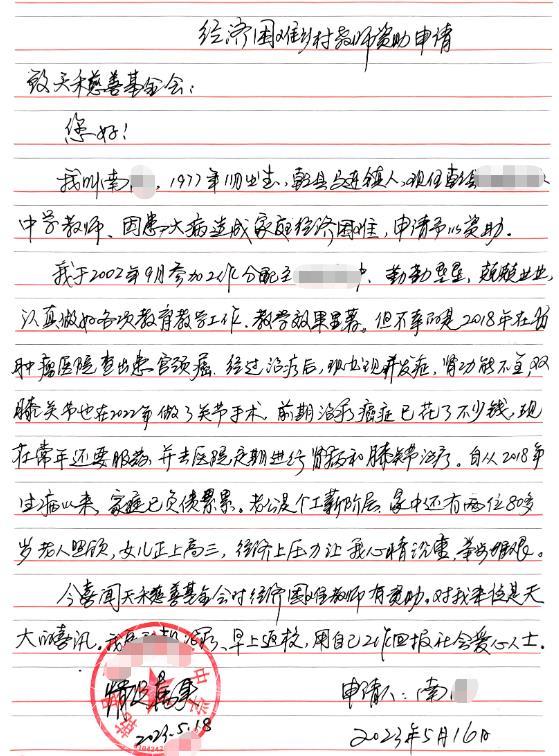 经济困难乡村教师资助申请
致天禾慈善基金会:
您好!
我叫南,1977年11月出生,乾县马连镇人,现任乾县
中学教师、因患大病造成家庭经济困难,申请予以资助.
我于2002年9月参加工作分配至中,勤勤垦垦,兢兢业业,
认真做好各项教育教学工作,教学效果显著。但不幸的是2018年在省
肿瘤医院查出患宫颈癌.经过治疗后,现出现并发症,肾功能不全,双
膝关节也在2022年做了关节手术,前期治疗癌症已花了不少钱,现
在常年还要服药,并去医院定期进行肾病和膝关节治疗。自从2018年
生病以来,家庭已负债累累。老公是个工薪阶层,家中还有两位80多
岁老人照顾,女儿正上高三,经济上压力让我心情沉重,举步艰难.
今喜闻天禾慈善基金会对经济困难教师有资助。对我来说是天
大的喜讯。治疗、早上返校,用自己工作回报社会爱心人士.
情况属实
申请人:南
2023.5.18
2023年5月16日